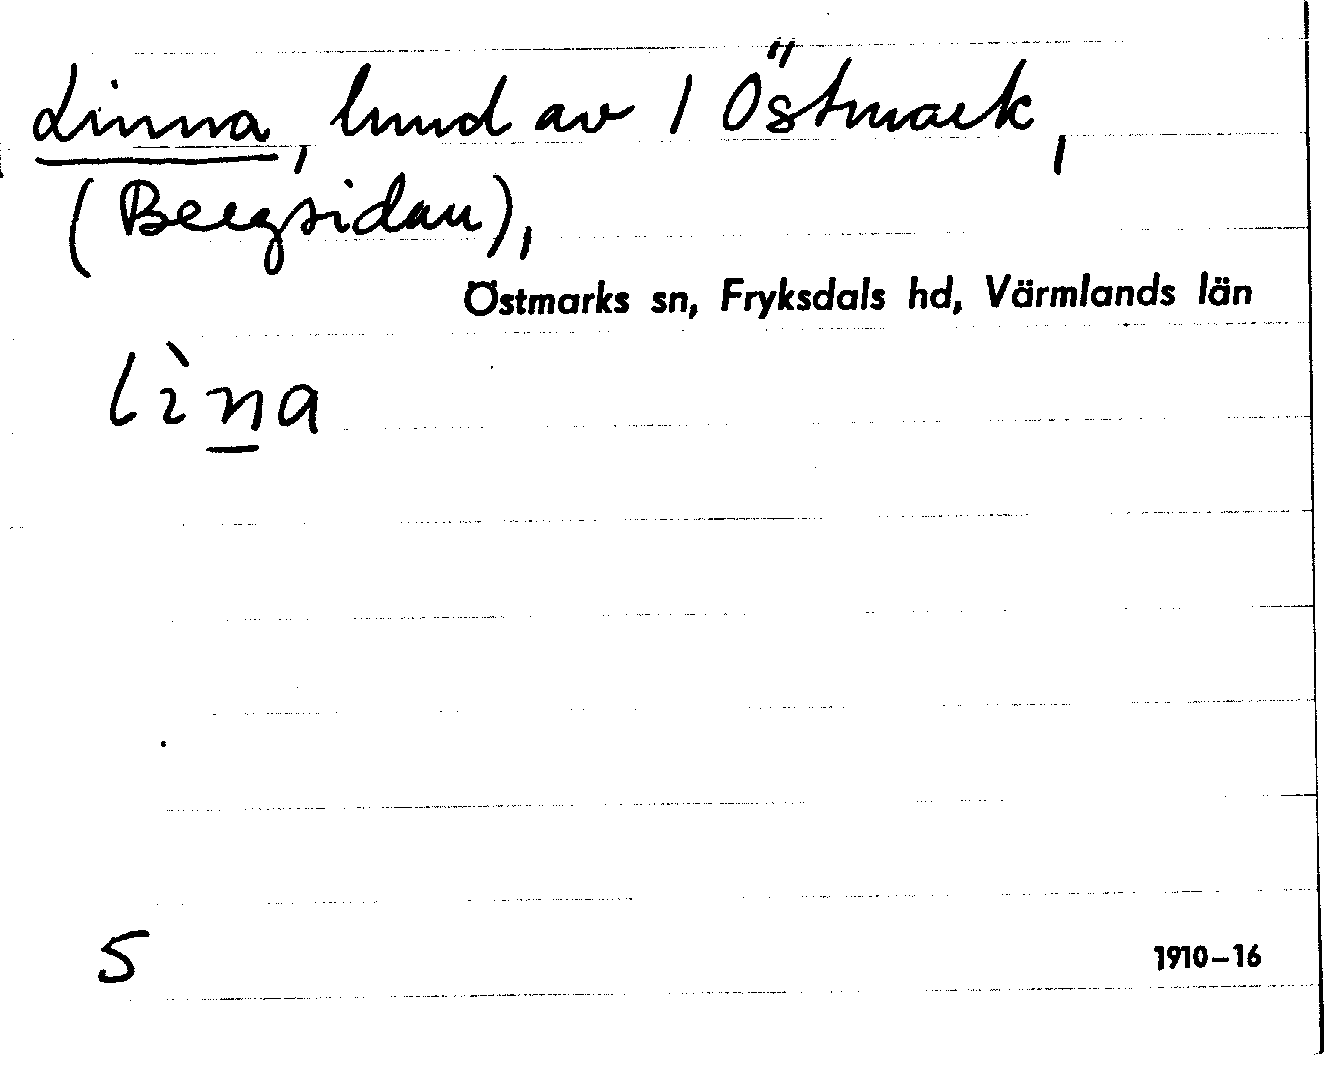 Linna, lund av 1 Östmark,
(Bergsidan),
Östmarks sn, Fryksdals hd, Värmlands län
lìn̲a
5
1910–16